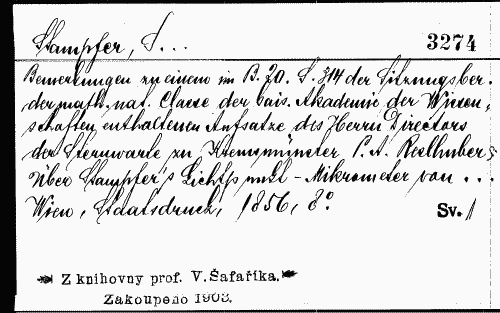 Stampfer, S...
3274
Bemerkungen zu einem im B. 20. S. 314 der Sitzungsber.
der math. nat. Classe der kais. Akademie der Wissen-
schaften enthaltenen Aufsatze des Herrn Directors
der Sternwarte zu Kremsmünster P. A. Reslhuber
über Stampfer's Lichtpunkt-Mikrometer von ...
Wien, Staatsdruck, 1856, 8°.
Sv. 1
Z knihovny prof. V. Šafaříka.
Zakoupeno 1903.